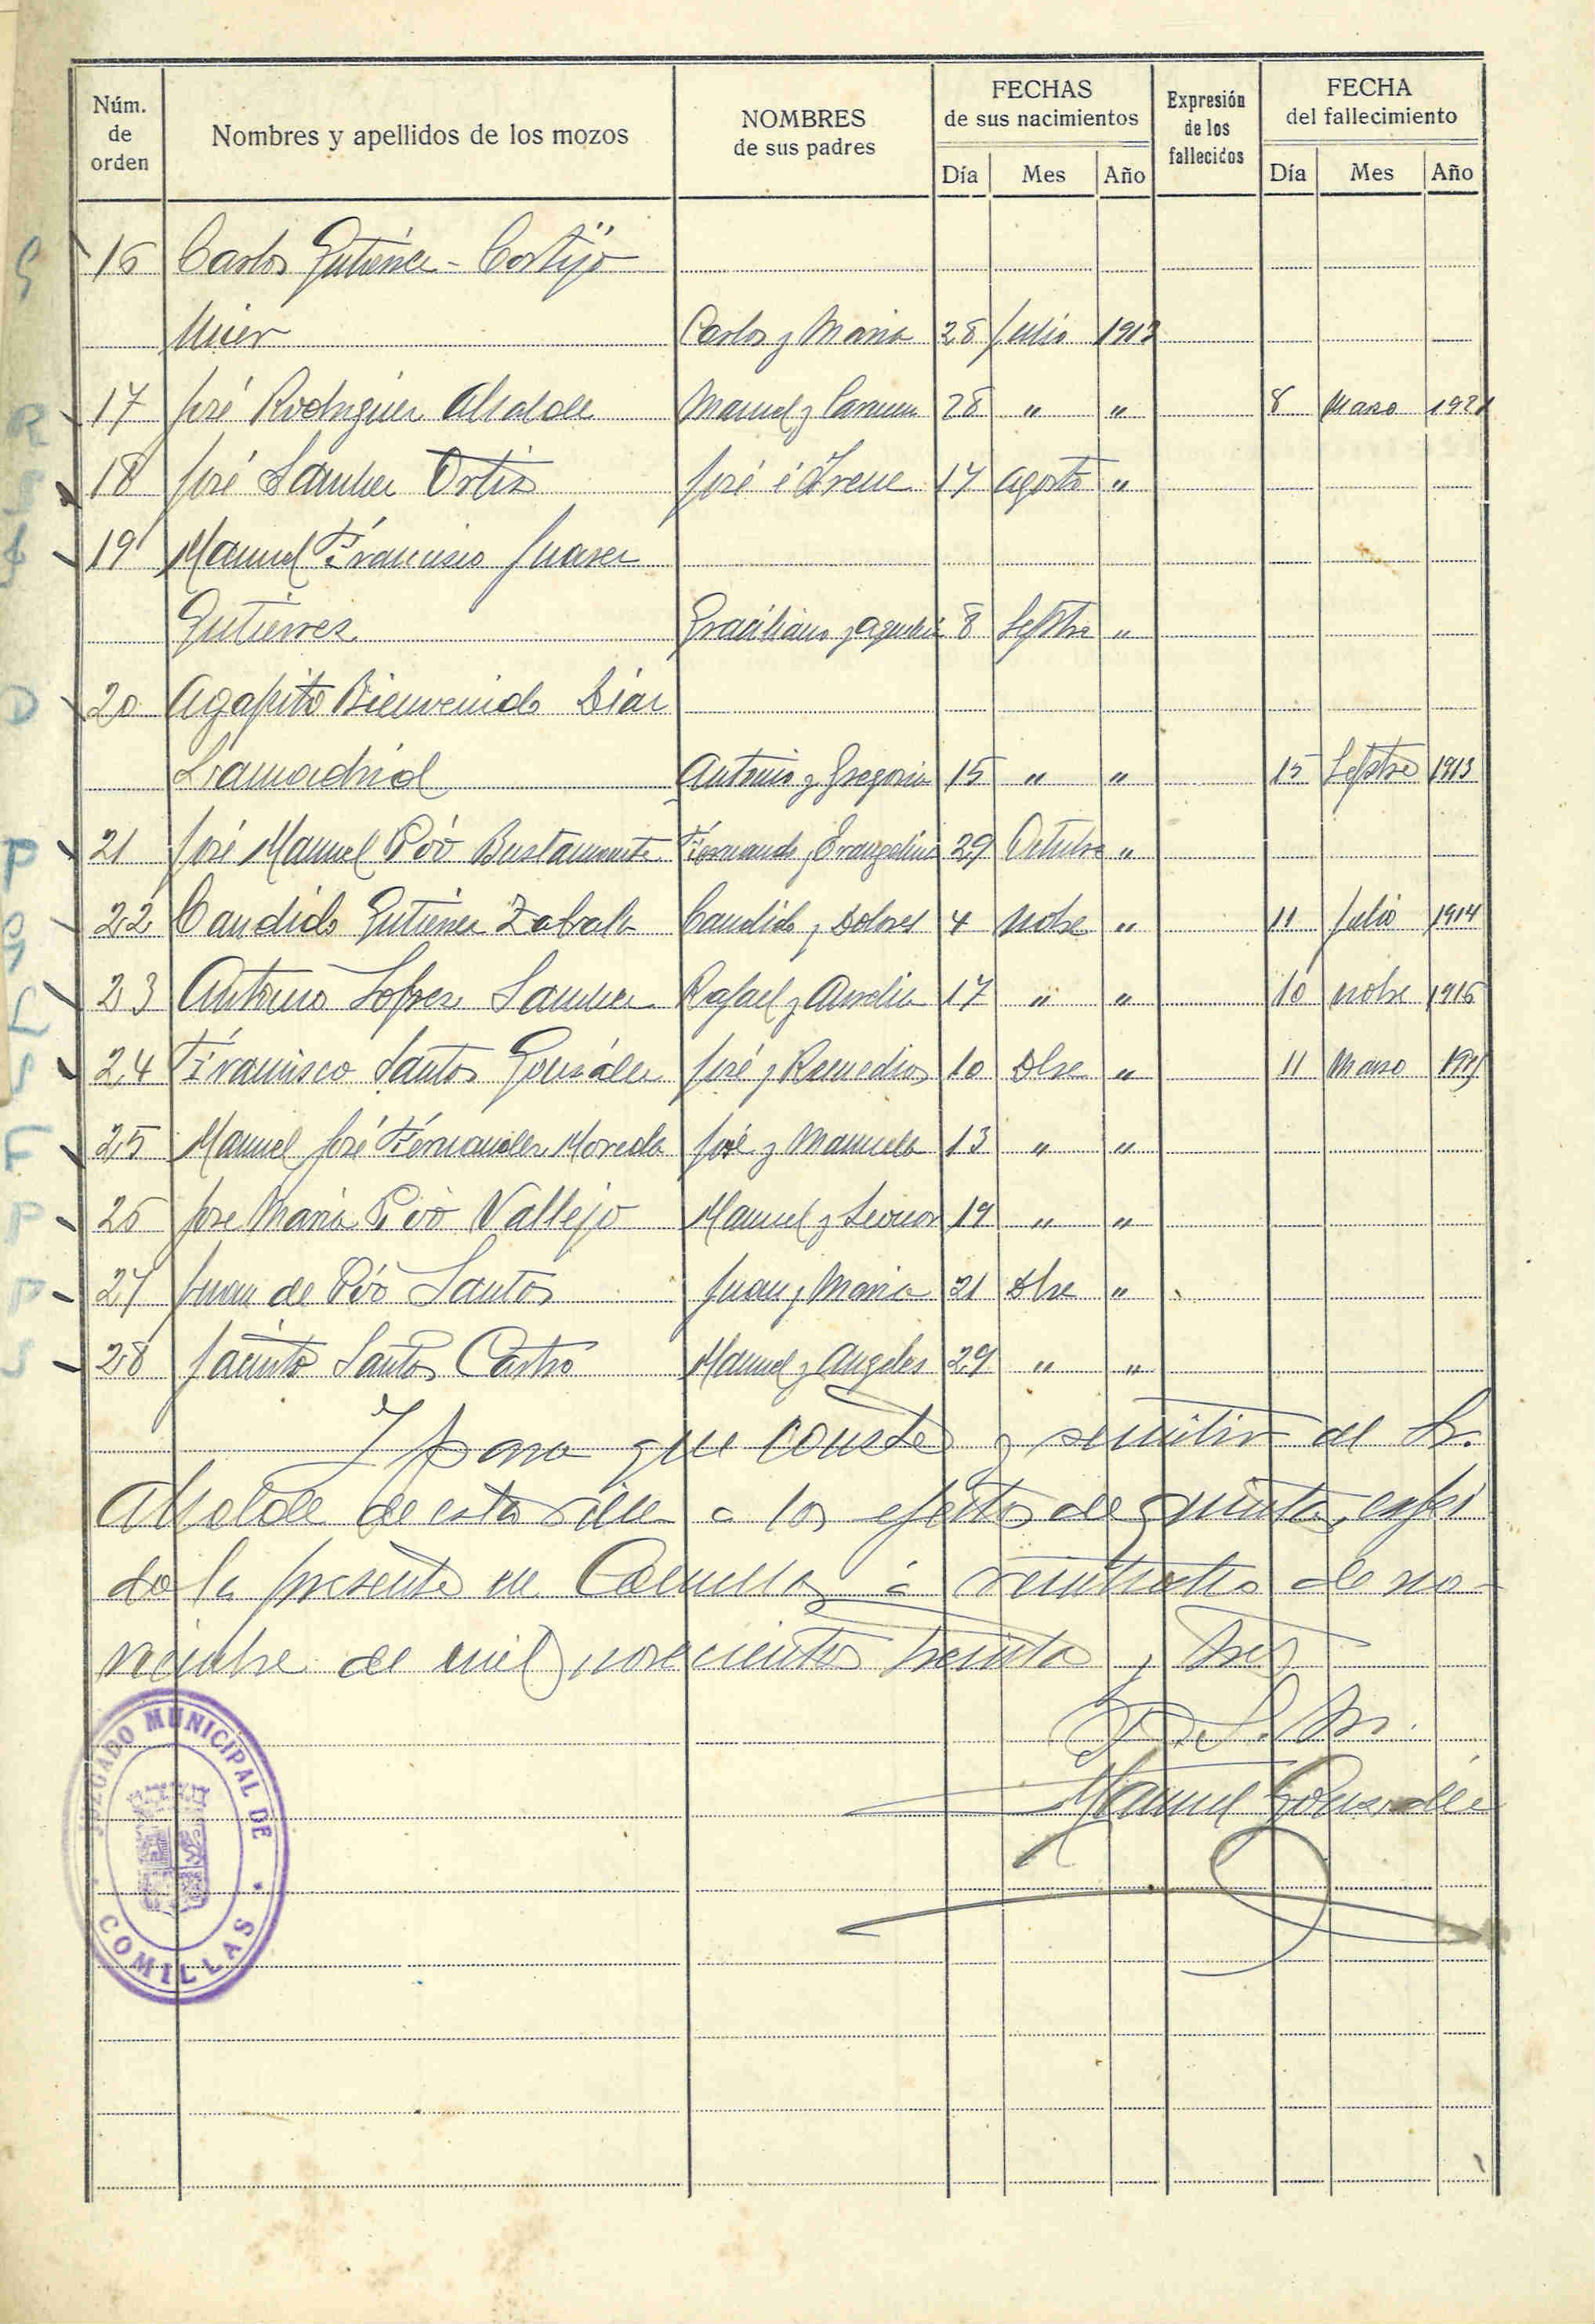 Núm. de orden
Nombres y apellidos de los mozos
NOMBRES de sus padres
FECHAS de sus nacimientos
Día Mes Año
Expresión de los fallecidos
FECHA del fallecimiento
Día Mes Año
G 16 Carlos Gutiérrez - Cortijo
Mier Carlos y Maria 28 Julio 1913
R 17 José Rodriguez Alcalde Manuel y Carmen 28 " " 8 Marzo 1921
S 18 José Sanchez Ortiz José é Irene 17 agosto "
J 19 Manuel Francisco Juarez
Gutierrez Graciliano y 8 Septbre "
D 20 Agapito Bienvenido Diaz
Lramadrid Antonio y Gregoria 15 " " 15 Septbre 1913
P 21 José Manuel Póo Bustamante Fernando y Evangelina 29 Octubre "
G 22 Candido Gutierrez Zabala Candido y Dolores 4 Nobre " 11 Julio 1914
L 23 Antonio Lopez Sanchez Rafael y Amelia 17 " " 10 nobre 1916
S 24 Francisco Santos González José y Remedios 10 Dbre " 11 Marzo
F 25 Manuel José Fernandez Moreda José y Manuela 13 " "
P 26 Jose Maria Póo Vallejo Manuel y Leonor 19 " "
P 27 Juan de Póo Santos Juan y Maria 21 Dbre "
S 28 Jacinto Santos Castro Manuel y Angeles 29 " "
Y para que conste y remitir al Sr.
Alcalde de esta villa a los efectos de quintas, expi
do la presente en Comillas á veintiocho de no-
viembre de mil novecientos treinta y tres
P. S. M.
Manuel González
JUZGADO MUNICIPAL DE
COMILLAS